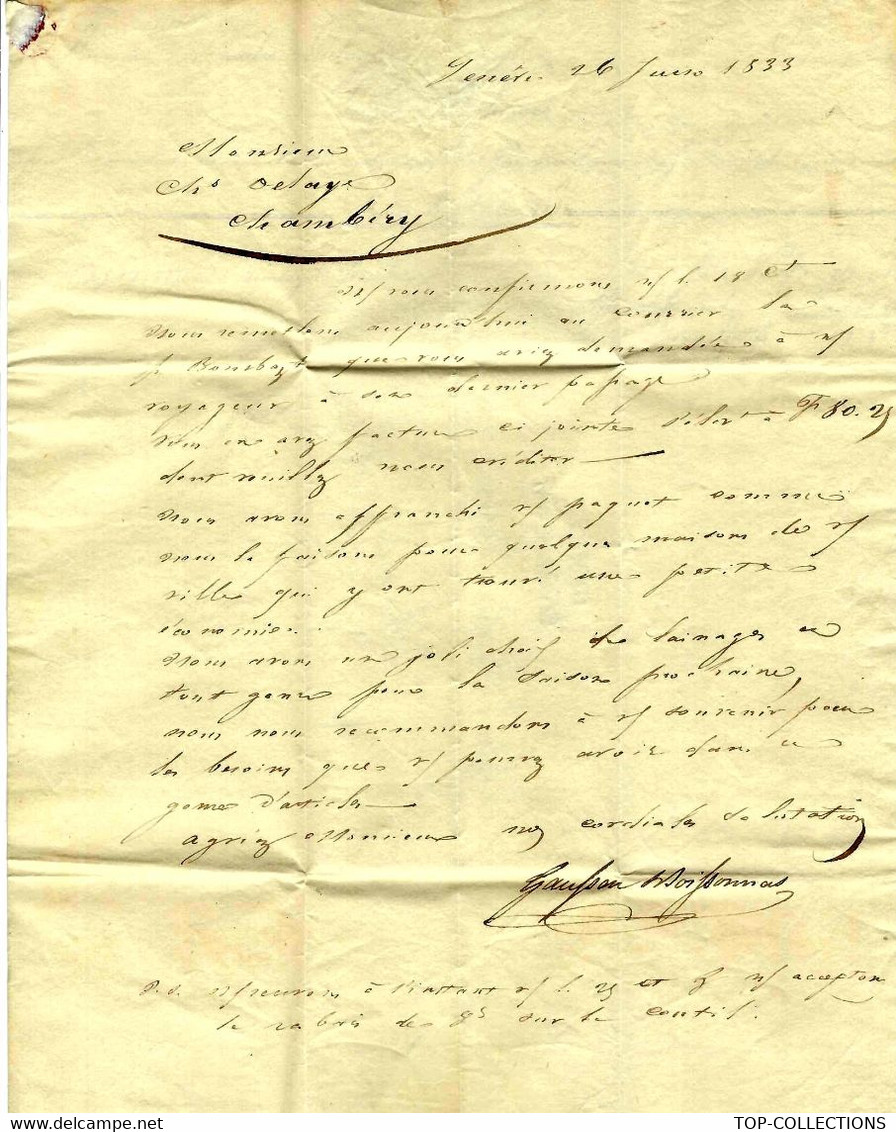 Genève 26 Juin 1833
Monsieur
Chs Delaye
Chambéry
vous confirmons n/ l. 18 Ct
Nous remettons aujourd'hui au courrier la
p. Bombazt que vous aviez demandée à n/
voyageur à son dernier passage
Vous en avez facture ci jointe s'élevt à F 80. 25
dont veuillez nous créditer
Nous avons affranchi v/ paquet comme
nous le faisons pour quelques maisons de v/
ville qui y ont trouvé une petite
économie.
Nous avons un joli choix de lainages en
tout genre pour la saison prochaine,
nous nous recommandons à v/ souvenir pour
les besoins que v/ pourrez avoir dans ce
genre d'articles
Agréez Monsieur nos cordiales salutations
Gaussen Boissonnas
P.S. recevons à l'instant v/ l. 25 et n/ accepton
le rabais de sur le coutil.
TOP-COLLECTIONS